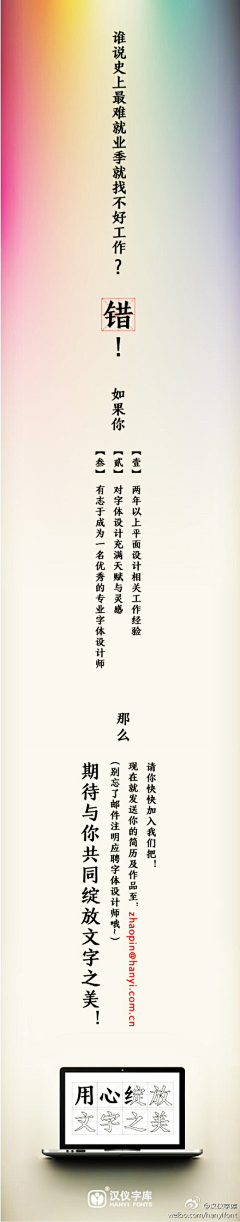 谁说史上最难就业季就找不好工作？
错！
如果你
【壹】 两年以上平面设计相关工作经验
【贰】 对字体设计充满天赋与灵感
【叁】 有志于成为一名优秀的专业字体设计师
那么
请你快快加入我们把！
现在就发送你的简历及作品至：zhaopin@hanyi.com.cn
（别忘了邮件注明应聘字体设计师哦~）
期待与你共同绽放文字之美！
用心绽放
文字之美
汉仪字库
HANYI FONTS
@汉仪字库
weibo.com/hanyifont